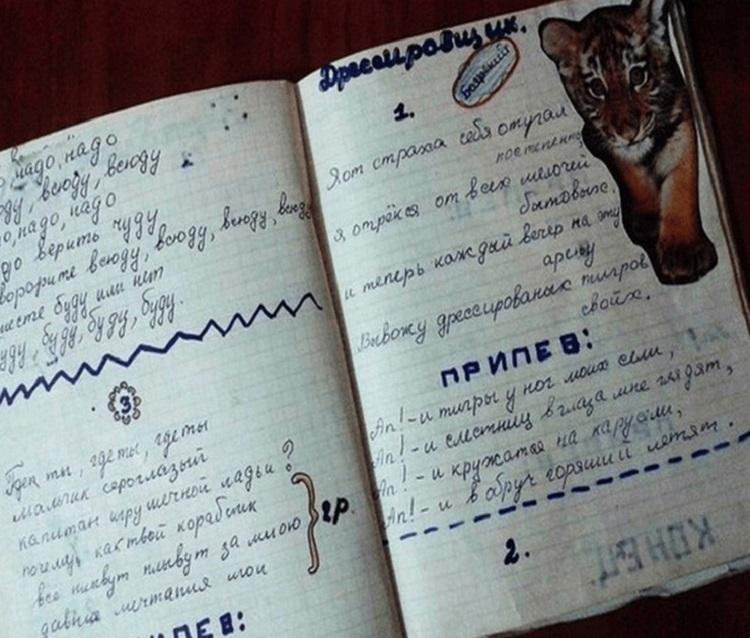 надо, надо
всюду, всюду
надо, надо
верить чуду
всюду, всюду, всюду, всюду
вместе буду или нет
буду, буду, буду.
3
ты, где ты, где ты
мальчик сероглазый
капитан игрушечной ладьи?
почему, как твой кораблик
все плывут плывут за мною
давние мечтания мои
}2р.
Дрессировщик.
Боярский
1.
Я от страха себя отучал
постепенно,
я, отрёкся от всех мелочей
бытовых.
и теперь каждый вечер на эту
арену
Вывожу дрессированых тигров
свойх.
ПРИПЕВ:
Ап! - и тигры у ног моих сели,
Ап! - и с лестниц в глаза мне глядят,
Ап! - и кружатся на карусели,
Ап! - и в обруч горящий летят.
2.
КОНЕЦ